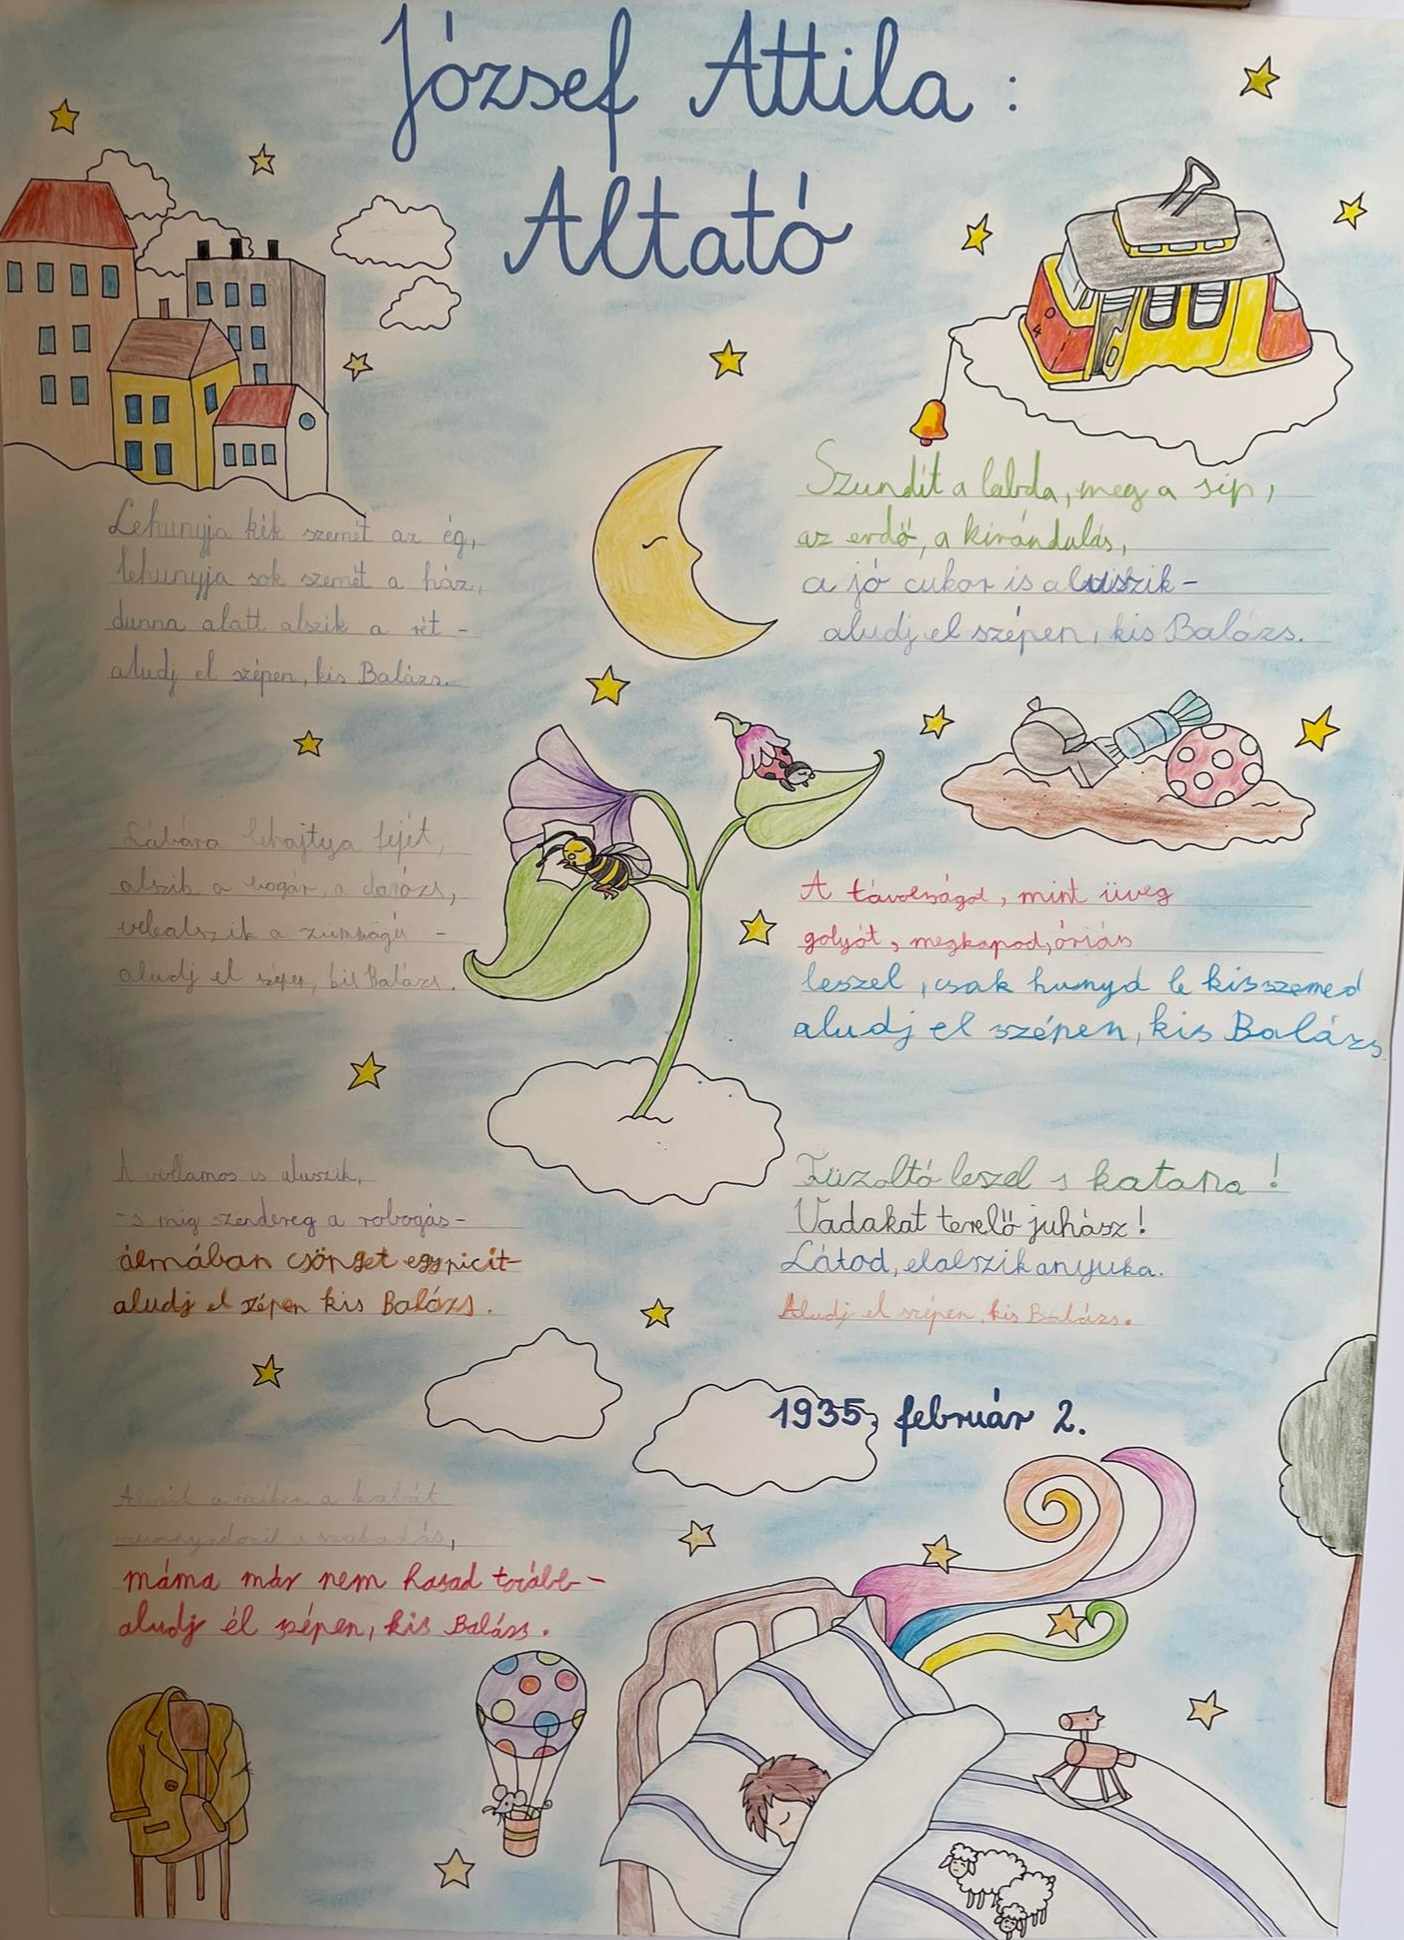 József Attila :
Altató
Lehunyja kék szemét az ég,
lehunyja sok szemét a ház,
dunna alatt alszik a rét -
aludj el szépen, kis Balázs.
Lábára lehajtja fejét,
alszik a bogár, a darázs,
velealszik a zümmögés -
aludj el szépen, kis Balázs.
A villamos is aluszik,
-s mig szendereg a robogás-
álmában csönget egy picit-
aludj el szépen kis Balázs.
Alszik a széken a kabát
szunnyadozik a szakadás,
máma már nem hasad tovább-
aludj él szépen, kis Balázs.
Szundít a labda, meg a síp,
az erdő, a kirándulás,
a jó cukor is aluszik-
aludj el szépen, kis Balázs.
A távolságot, mint üveg
golyót, megkapod, óriás
leszel, csak hunyd le kis szemed
aludj el szépen, kis Balázs
Tűzoltó leszel s katona!
Vadakat terelő juhász!
Látod, elalszik anyuka.
Aludj el szépen, kis Balázs.
1935, február 2.
4